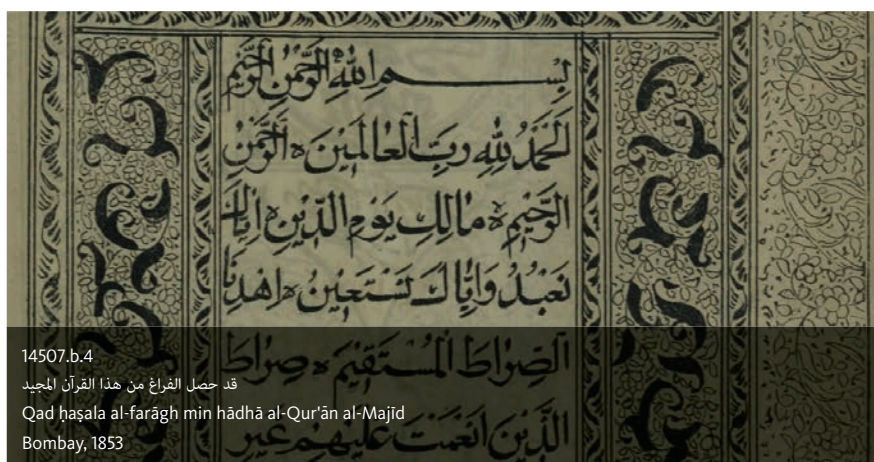 بِسْــــمِ اللهِ الرَّحْمٰنِ الرَّحِيْمِ
اَلْحَمْدُ لِلّٰهِ رَبِّ الْعٰالَمِيْنَ ه الرَّحْمٰنِ
الرَّحِيْمِ ه مٰالِكِ يَوْمِ الدِّيْنِ ه اِيّٰاكَ
نَعْبُدُ وَاِيّٰاكَ نَسْتَعِيْنُ ه اِهْدِنَا
الصِّرٰاطَ الْمُسْتَقِيْمَ ه صِرٰاطَ
الَّذِيْنَ اَنْعَمْتَ عَلَيْهِمْ غَيْرِ
14507.b.4
قد حصل الفراغ من هذا القرآن المجيد
Qad ḥaṣala al-farāgh min hādhā al-Qur'ān al-Majīd
Bombay, 1853